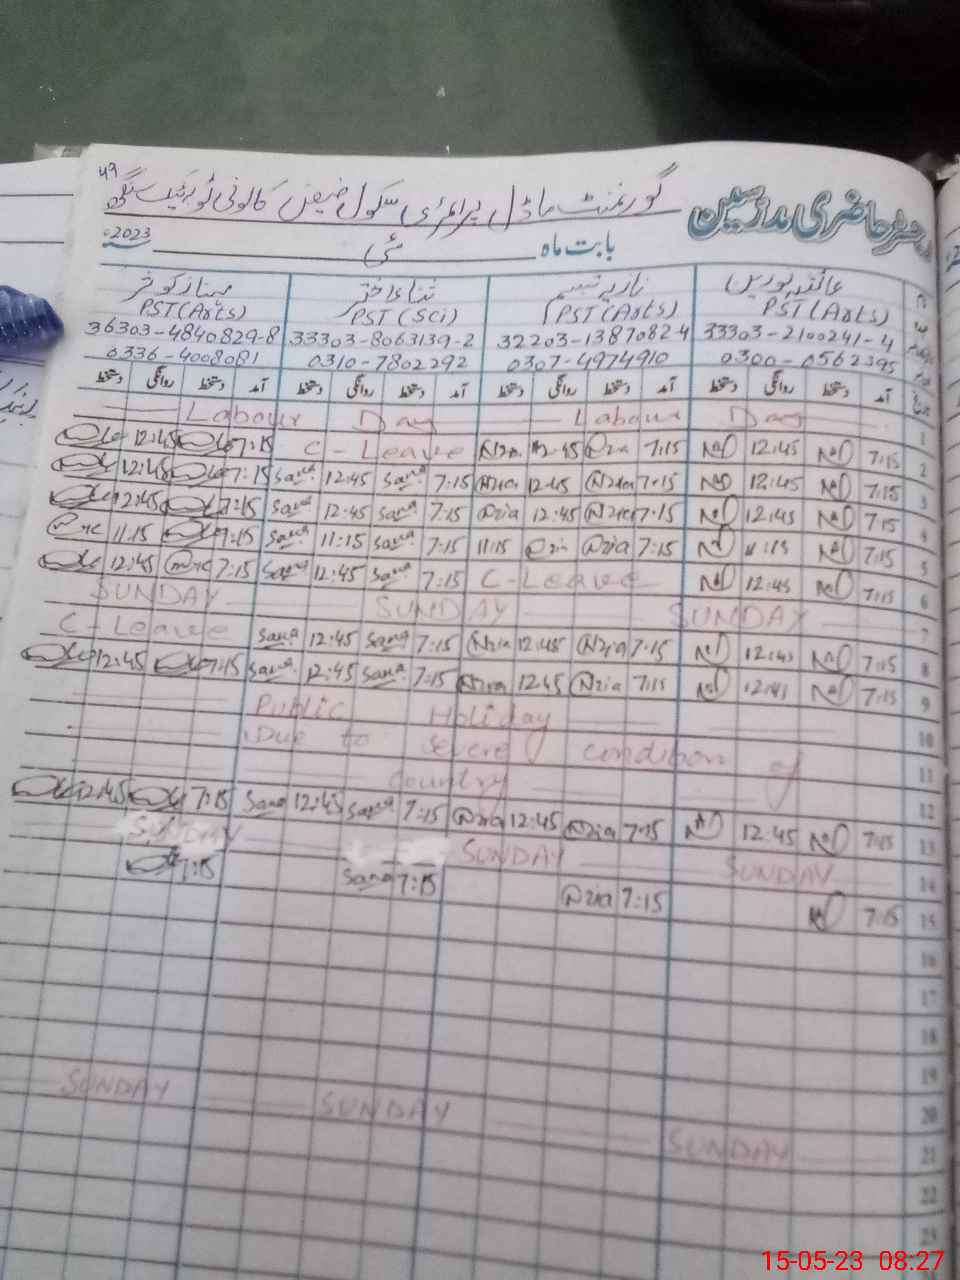 49
رجسٹر حاضری مدرسین
گورنمنٹ ماڈل پرائمری سکول فیض کالونی ٹوبہ ٹیک سنگھ
بابت ماہ مئی 2023
عائشہ نورین نازیہ تبسم ثناء اختر مہناز کوثر
PST(Arts) PST(Sci) PST(Arts) PST(Arts)
36303-4840829-8 33303-8063139-2 32203-1387082-4 33303-2100241-4
0336-4008081 0310-7802292 0307-4974910 0300-0562395
تاریخ آمد دستخط روانگی دستخط آمد دستخط روانگی دستخط آمد دستخط روانگی دستخط آمد دستخط روانگی دستخط
Labour Day Labour Day 1
12:45 7:15 C-Leave Nzia 12:45 Nzia 7:15 12:45 7:15 2
12:45 7:15 Sana 12:45 Sana 7:15 Nzia 12:45 Nzia 7:15 12:45 7:15 3
12:45 7:15 Sana 12:45 Sana 7:15 Nzia 12:45 Nzia 7:15 12:45 7:15 4
11:15 7:15 Sana 11:15 Sana 7:15 11:15 Nzia Nzia 7:15 11:15 7:15 5
12:45 7:15 Sana 12:45 Sana 7:15 C-Leave 12:45 7:15 6
SUNDAY SUNDAY SUNDAY 7
C-Leave Sana 12:45 Sana 7:15 Nzia 12:45 Nzia 7:15 12:45 7:15 8
12:45 7:15 Sana 12:45 Sana 7:15 Nzia 12:45 Nzia 7:15 12:45 7:15 9
Public Holiday 10
Due to Severe condition of 11
Country 12
12:45 7:15 Sana 12:45 Sana 7:15 Nzia 12:45 Nzia 7:15 12:45 7:15 13
SUNDAY SUNDAY SUNDAY 14
7:15 Sana 7:15 Nzia 7:15 7:15 15
16
17
18
19
20
SUNDAY SUNDAY SUNDAY 21
22
23
15-05-23 08:27